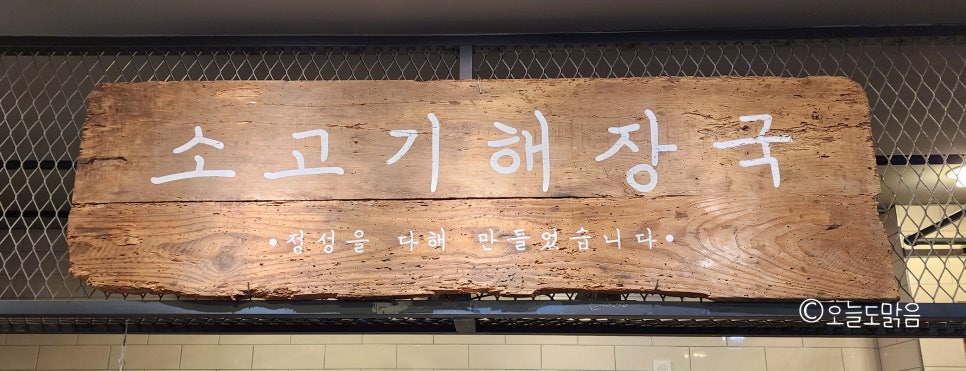 소고기해장국
•정성을 다해 만들었습니다•
©오늘도맑음